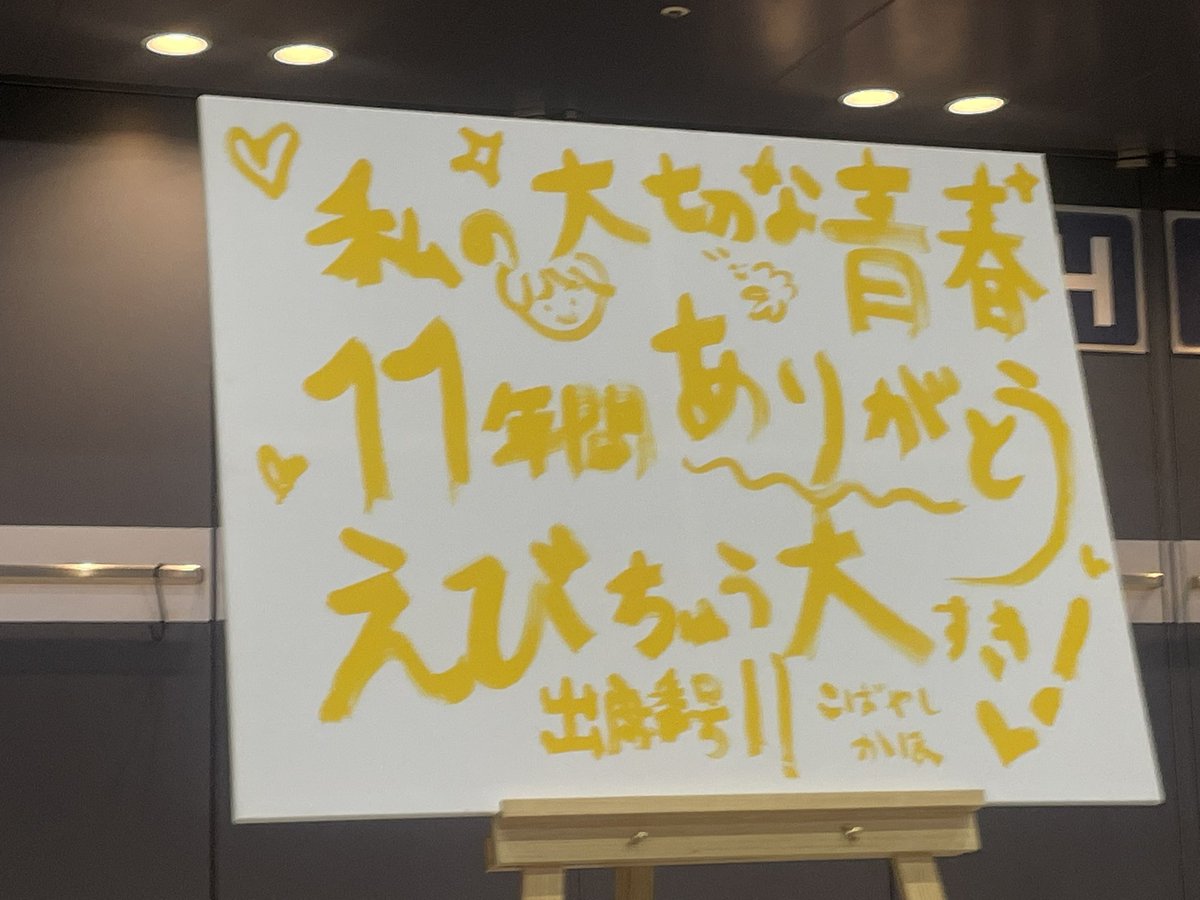 私の大切な青春
11年間ありがとう
えびちゅう大すき!
出席番号11 こばやし
かほ
H